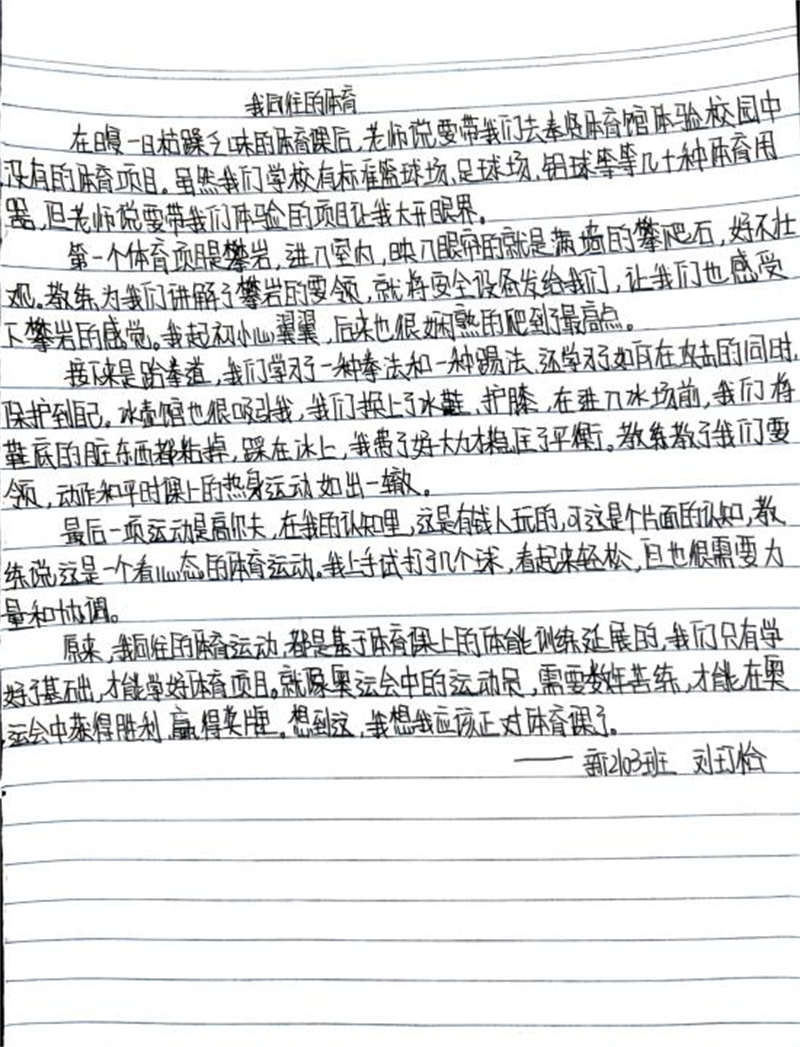 我向往的体育
在日复一日枯躁乏味的体育课后，老师说要带我们去奉贤体育馆体验校园中
没有的体育项目。虽然我们学校有标准篮球场、足球场、铅球等等几十种体育用
器，但老师说要带我们体验的项目让我大开眼界。
第一个体育项目是攀岩，进入室内，映入眼帘的就是满墙的攀爬石，好不壮
观。教练为我们讲解了攀岩的要领，就将安全设备发给我们，让我们也感受
下攀岩的感觉。我起初小心翼翼，后来也很娴熟的爬到了最高点。
接下来是跆拳道，我们学习了一种拳法和一种踢法，还学习了如何在攻击的同时，
保护到自己。冰壶馆也很吸引我，我们换上了冰鞋，护膝，在进入冰场前，我们将
鞋底的脏东西都粘掉，踩在冰上，我费了好大力才稳住了平衡。教练教了我们要
领，动作和平时课上的热身运动如出一辙。
最后一项运动是高尔夫，在我的认知里，这是有钱人玩的，可这是个片面的认知，教
练说这是一个看心态的体育运动。我上手试打了几个球，看起来轻松，但也很需要力
量和协调。
原来，我向往的体育运动，都是基于体育课上的体能训练延展的，我们只有学
好了基础，才能学好体育项目。就像奥运会中的运动员，需要数年苦练，才能在奥
运会中获得胜利，赢得奖牌。想到这，我想我应该正对体育课了。
——新2103班 刘玎怡